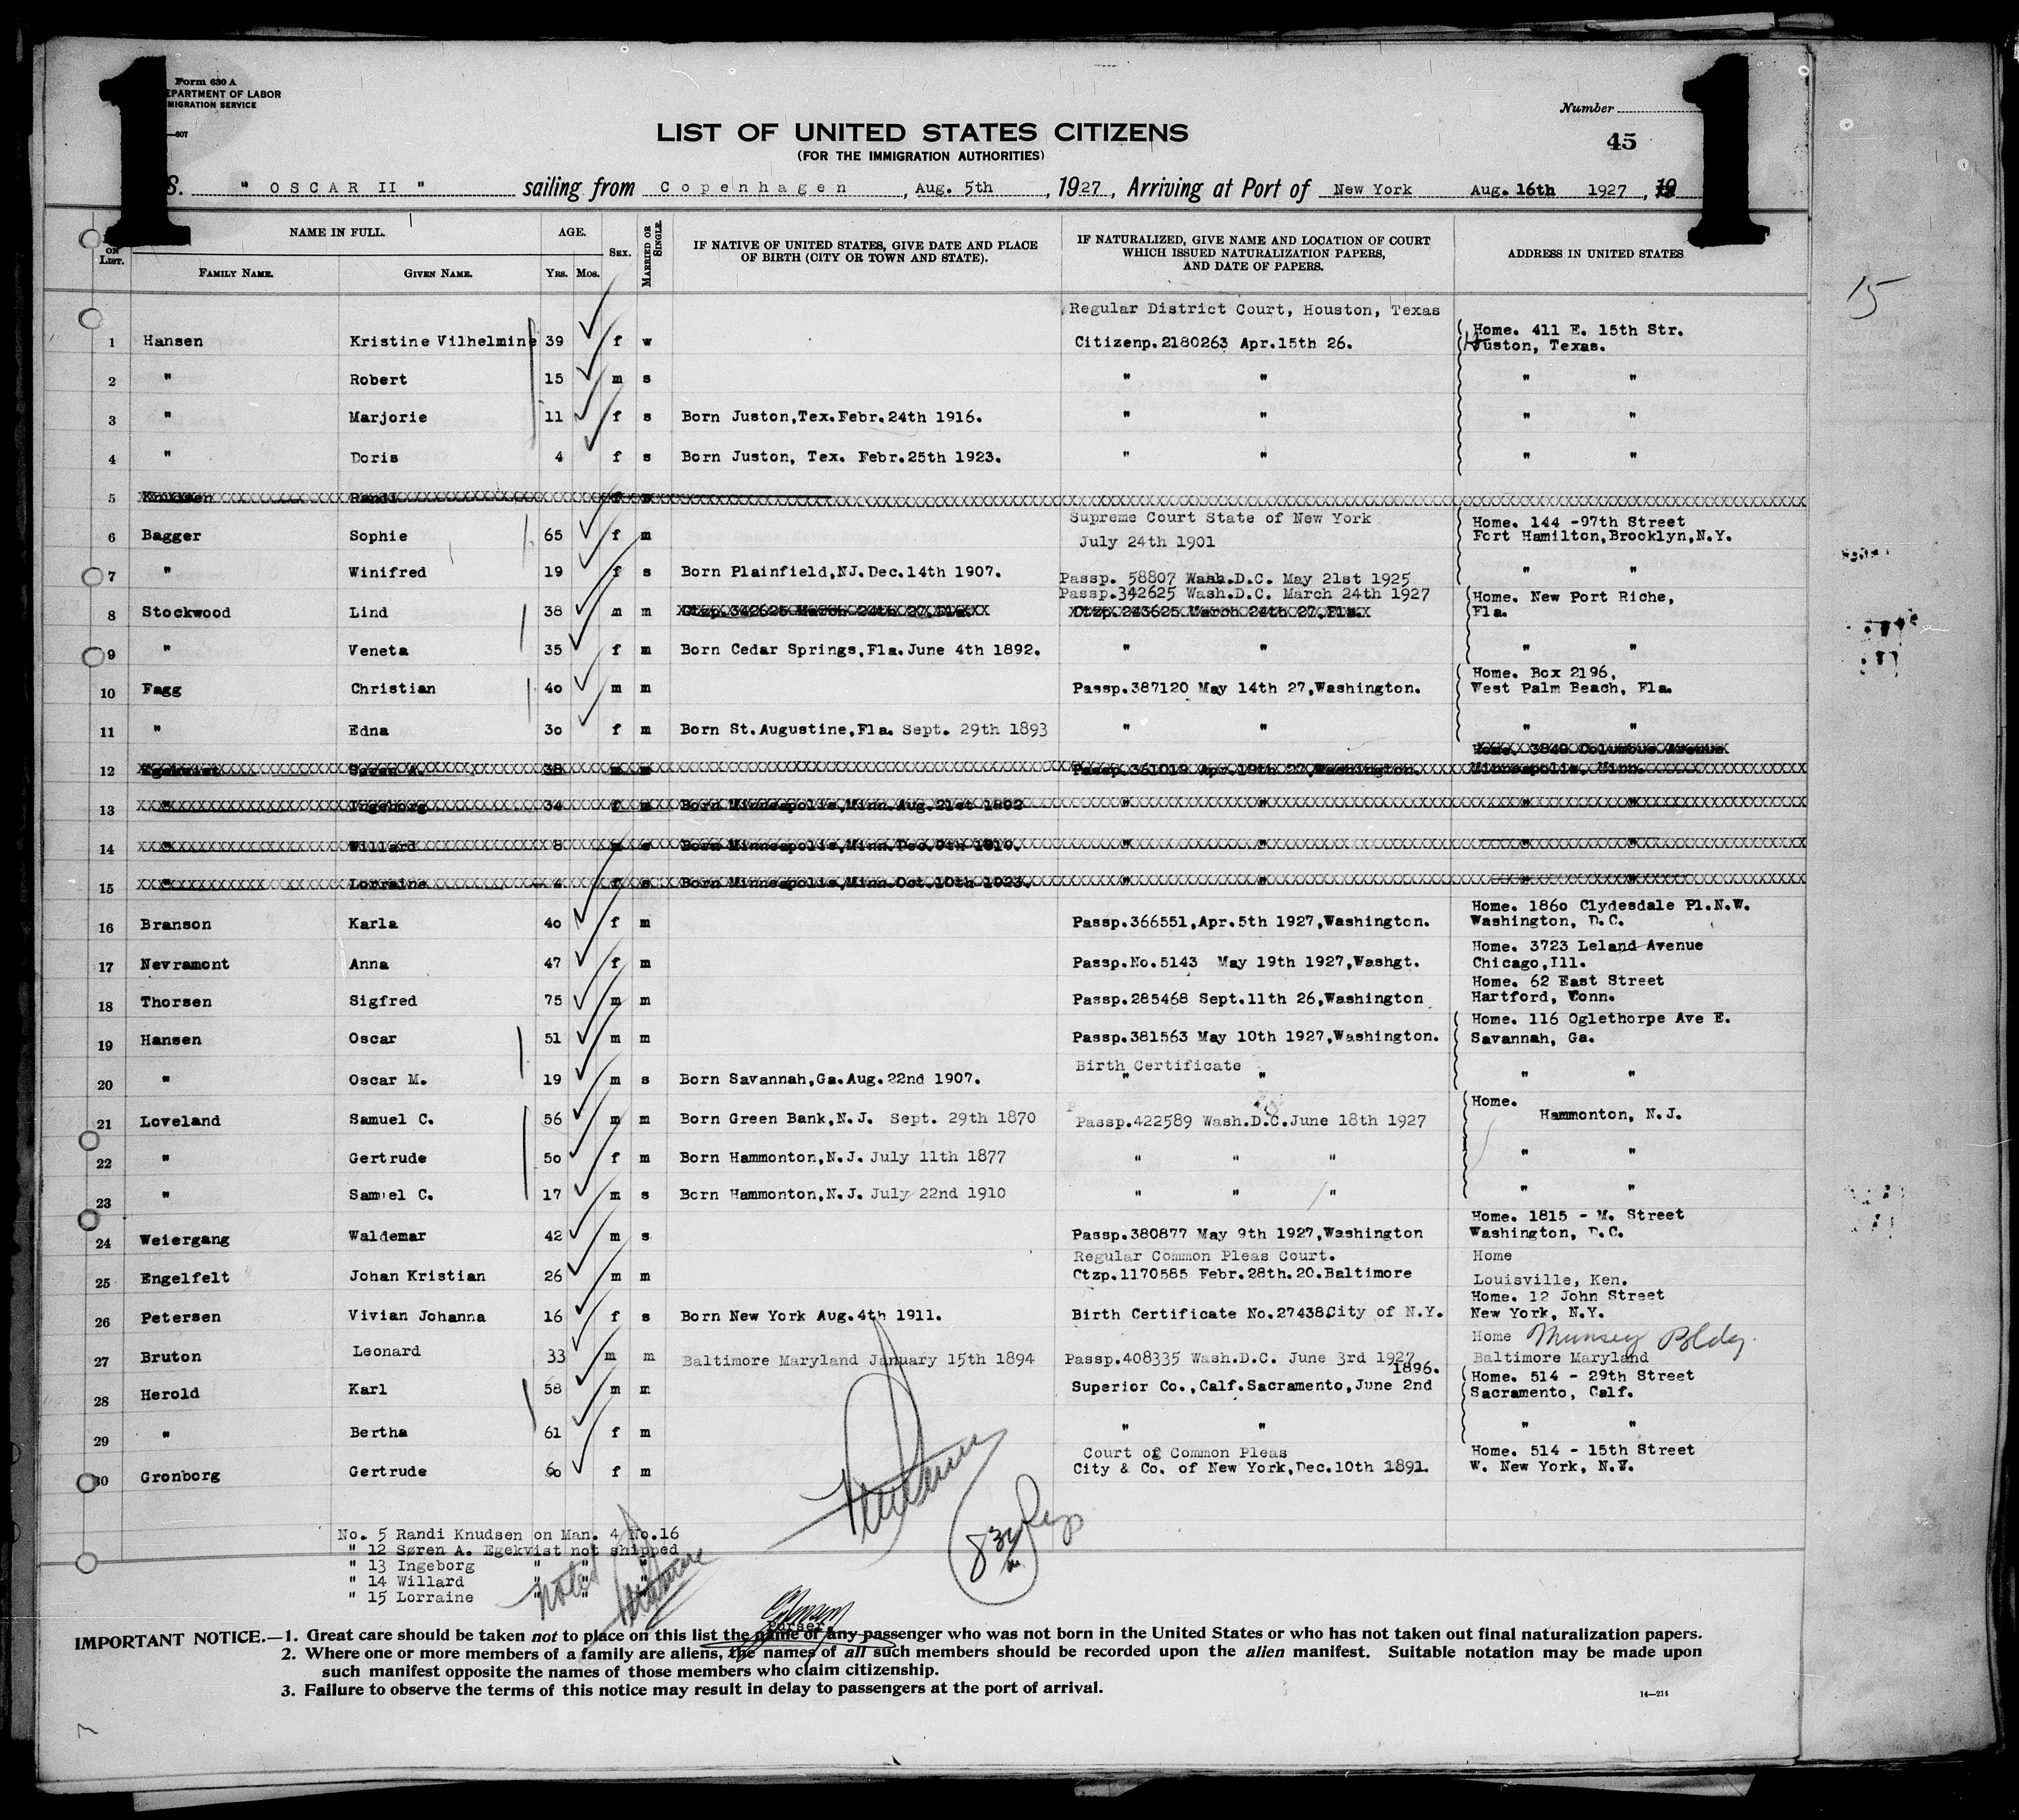 1
1
Form 630 A
EPARTMENT OF LABOR
MIGRATION SERVICE
—607
Number
45
LIST OF UNITED STATES CITIZENS
(FOR THE IMMIGRATION AUTHORITIES)
S. " OSCAR II " sailing from Copenhagen, Aug. 5th, 1927, Arriving at Port of New York Aug. 16th 1927, 19
15
ON LIST. NAME IN FULL. AGE. SEX. MARRIED OR SINGLE. IF NATIVE OF UNITED STATES, GIVE DATE AND PLACE OF BIRTH (CITY OR TOWN AND STATE). IF NATURALIZED, GIVE NAME AND LOCATION OF COURT WHICH ISSUED NATURALIZATION PAPERS, AND DATE OF PAPERS. ADDRESS IN UNITED STATES
FAMILY NAME. GIVEN NAME. YRS. MOS.
Regular District Court, Houston, Texas
1 Hansen Kristine Vilhelmine 39 f w Citizenp.2180263 Apr.15th 26. Home. 411 E. 15th Str. Juston, Texas.
2 " Robert 15 m s " " " "
3 " Marjorie 11 f s Born Juston,Tex.Febr.24th 1916. " " " "
4 " Doris 4 f s Born Juston, Tex. Febr.25th 1923. " " " "
5 Knudsen Randi f s
6 Bagger Sophie 65 f m Supreme Court State of New York July 24th 1901 Home. 144 -97th Street Fort Hamilton,Brooklyn,N.Y.
7 " Winifred 19 f s Born Plainfield,NJ.Dec.14th 1907. Passp. 58807 Wash.D.C. May 21st 1925 " "
Passp.342625 Wash.D.C. March 24th 1927
8 Stockwood Lind 38 m m Ctzp.342625 March 24th 27,Fla. Ctzp.243625 March 24th 27,Fla. Home. New Port Riche, Fla.
9 " Veneta 35 f m Born Cedar Springs,Fla.June 4th 1892. " " " "
10 Fagg Christian 40 m m Passp.387120 May 14th 27,Washington. Home. Box 2196, West Palm Beach, Fla.
11 " Edna 30 f m Born St.Augustine,Fla. Sept. 29th 1893 " " " "
12 Egekvist Søren A. 38 m m Passp.361019 Apr.19th 27,Washington. Home. 3840 Columbus Avenue Minneapolis, Minn.
13 " Ingeborg 34 f m Born Minneapolis,Minn.Aug.21st 1892 " " " "
14 " Willard 8 m s Born Minneapolis,Minn.Dec.9th 1919. " " " "
15 " Lorraine 4 f s Born Minneapolis,Minn.Oct.10th 1923. " " " "
16 Branson Karla 40 f m Passp.366551,Apr.5th 1927,Washington. Home. 1860 Clydesdale Pl.N.W. Washington, D.C.
17 Nevramont Anna 47 f m Passp.No.5143 May 19th 1927,Washgt. Home. 3723 Leland Avenue Chicago,Ill.
18 Thorsen Sigfred 75 m m Passp.285468 Sept.11th 26,Washington Home. 62 East Street Hartford, Conn.
19 Hansen Oscar 51 m m Passp.381563 May 10th 1927,Washington. Home. 116 Oglethorpe Ave E. Savannah, Ga.
Birth Certificate
20 " Oscar M. 19 m s Born Savannah,Ga.Aug.22nd 1907. " " " "
21 Loveland Samuel C. 56 m m Born Green Bank,N.J. Sept. 29th 1870 Passp.422589 Wash.D.C.June 18th 1927 Home. Hammonton, N.J.
22 " Gertrude 50 f m Born Hammonton,N.J. July 11th 1877 " " " " "
23 " Samuel C. 17 m s Born Hammonton,N.J. July 22nd 1910 " " " " "
24 Weiergang Waldemar 42 m s Passp.380877 May 9th 1927,Washington Home. 1815 - M. Street Washington, D.C.
Regular Common Pleas Court.
25 Engelfelt Johan Kristian 26 m m Ctzp.1170585 Febr.28th.20.Baltimore Home Louisville, Ken.
26 Petersen Vivian Johanna 16 f s Born New York Aug.4th 1911. Birth Certificate No.27438,City of N.Y. Home. 12 John Street New York, N.Y.
27 Bruton Leonard 33 m m Baltimore Maryland January 15th 1894 Passp.408335 Wash.D.C. June 3rd 1927 Home Munsey Bldg. Baltimore Maryland
28 Herold Karl 58 m m Superior Co.,Calf.Sacramento,June 2nd 1896. Home. 514 - 29th Street Sacramento, Calf.
29 " Bertha 61 f m " " " "
Court of Common Pleas
30 Gronborg Gertrude 60 f m City & Co. of New York,Dec.10th 1891. Home. 514 - 15th Street W. New York, N.Y.
No. 5 Randi Knudsen on Man. 4 No.16
" 12 Søren A. Egekvist not shipped
" 13 Ingeborg " " "
" 14 Willard " " "
" 15 Lorraine " " "
noted
Purser
IMPORTANT NOTICE.—1. Great care should be taken not to place on this list the name of any passenger who was not born in the United States or who has not taken out final naturalization papers.
2. Where one or more members of a family are aliens, the names of all such members should be recorded upon the alien manifest. Suitable notation may be made upon
such manifest opposite the names of those members who claim citizenship.
3. Failure to observe the terms of this notice may result in delay to passengers at the port of arrival.
14—214